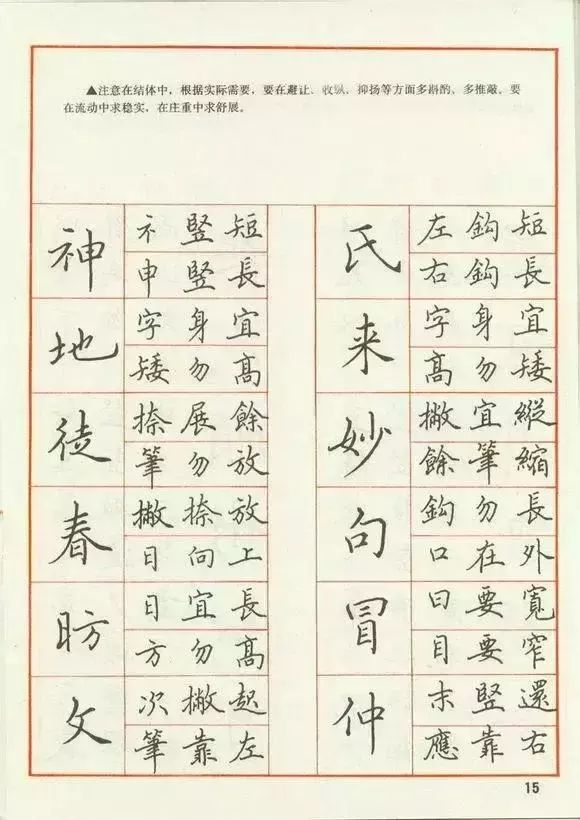 ▲注意在结体中，根据实际需要，要在避让、收纵、抑扬等方面多斟酌、多推敲。要
在流动中求稳实，在庄重中求舒展。
神
礻豎短
申豎長
地
字身宜
矮勿高
徒
捺展餘
筆勿放
春
撇捺放
日向上
昉
日宜長
方勿高
文
次撇起
筆靠左
氏
左鈎短
右鈎長
来
字身宜
高勿矮
妙
撇宜縱
餘筆縮
句
鈎勿長
口在外
冒
曰要寬
目要窄
仲
末豎還
應靠右
15